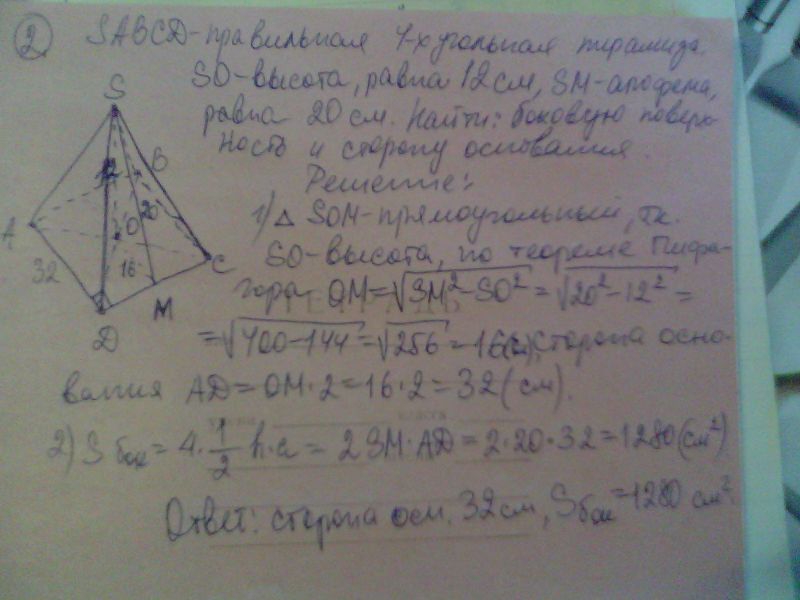 2) SABCD-правильная 4-х угольная пирамида.
SO-высота, равна 12 см, SM-апофема,
равна 20 см. Найти: боковую поверх-
ность и сторону основания.
Решение:
1) △ SOM-прямоугольный, т.к.
SO-высота, по теореме Пифа-
гора OM=√SM²-SO² = √20²-12² =
=√400-144=√256=16(см), сторона осно-
вания AD=OM·2=16·2=32(см).
2) S бок = 4·1/2 h·a = 2SM·AD=2·20·32=1280(см²)
Ответ: сторона осн. 32см, Sбок=1280 см²
S
12
B
20
A
O
32
16
C
M
D